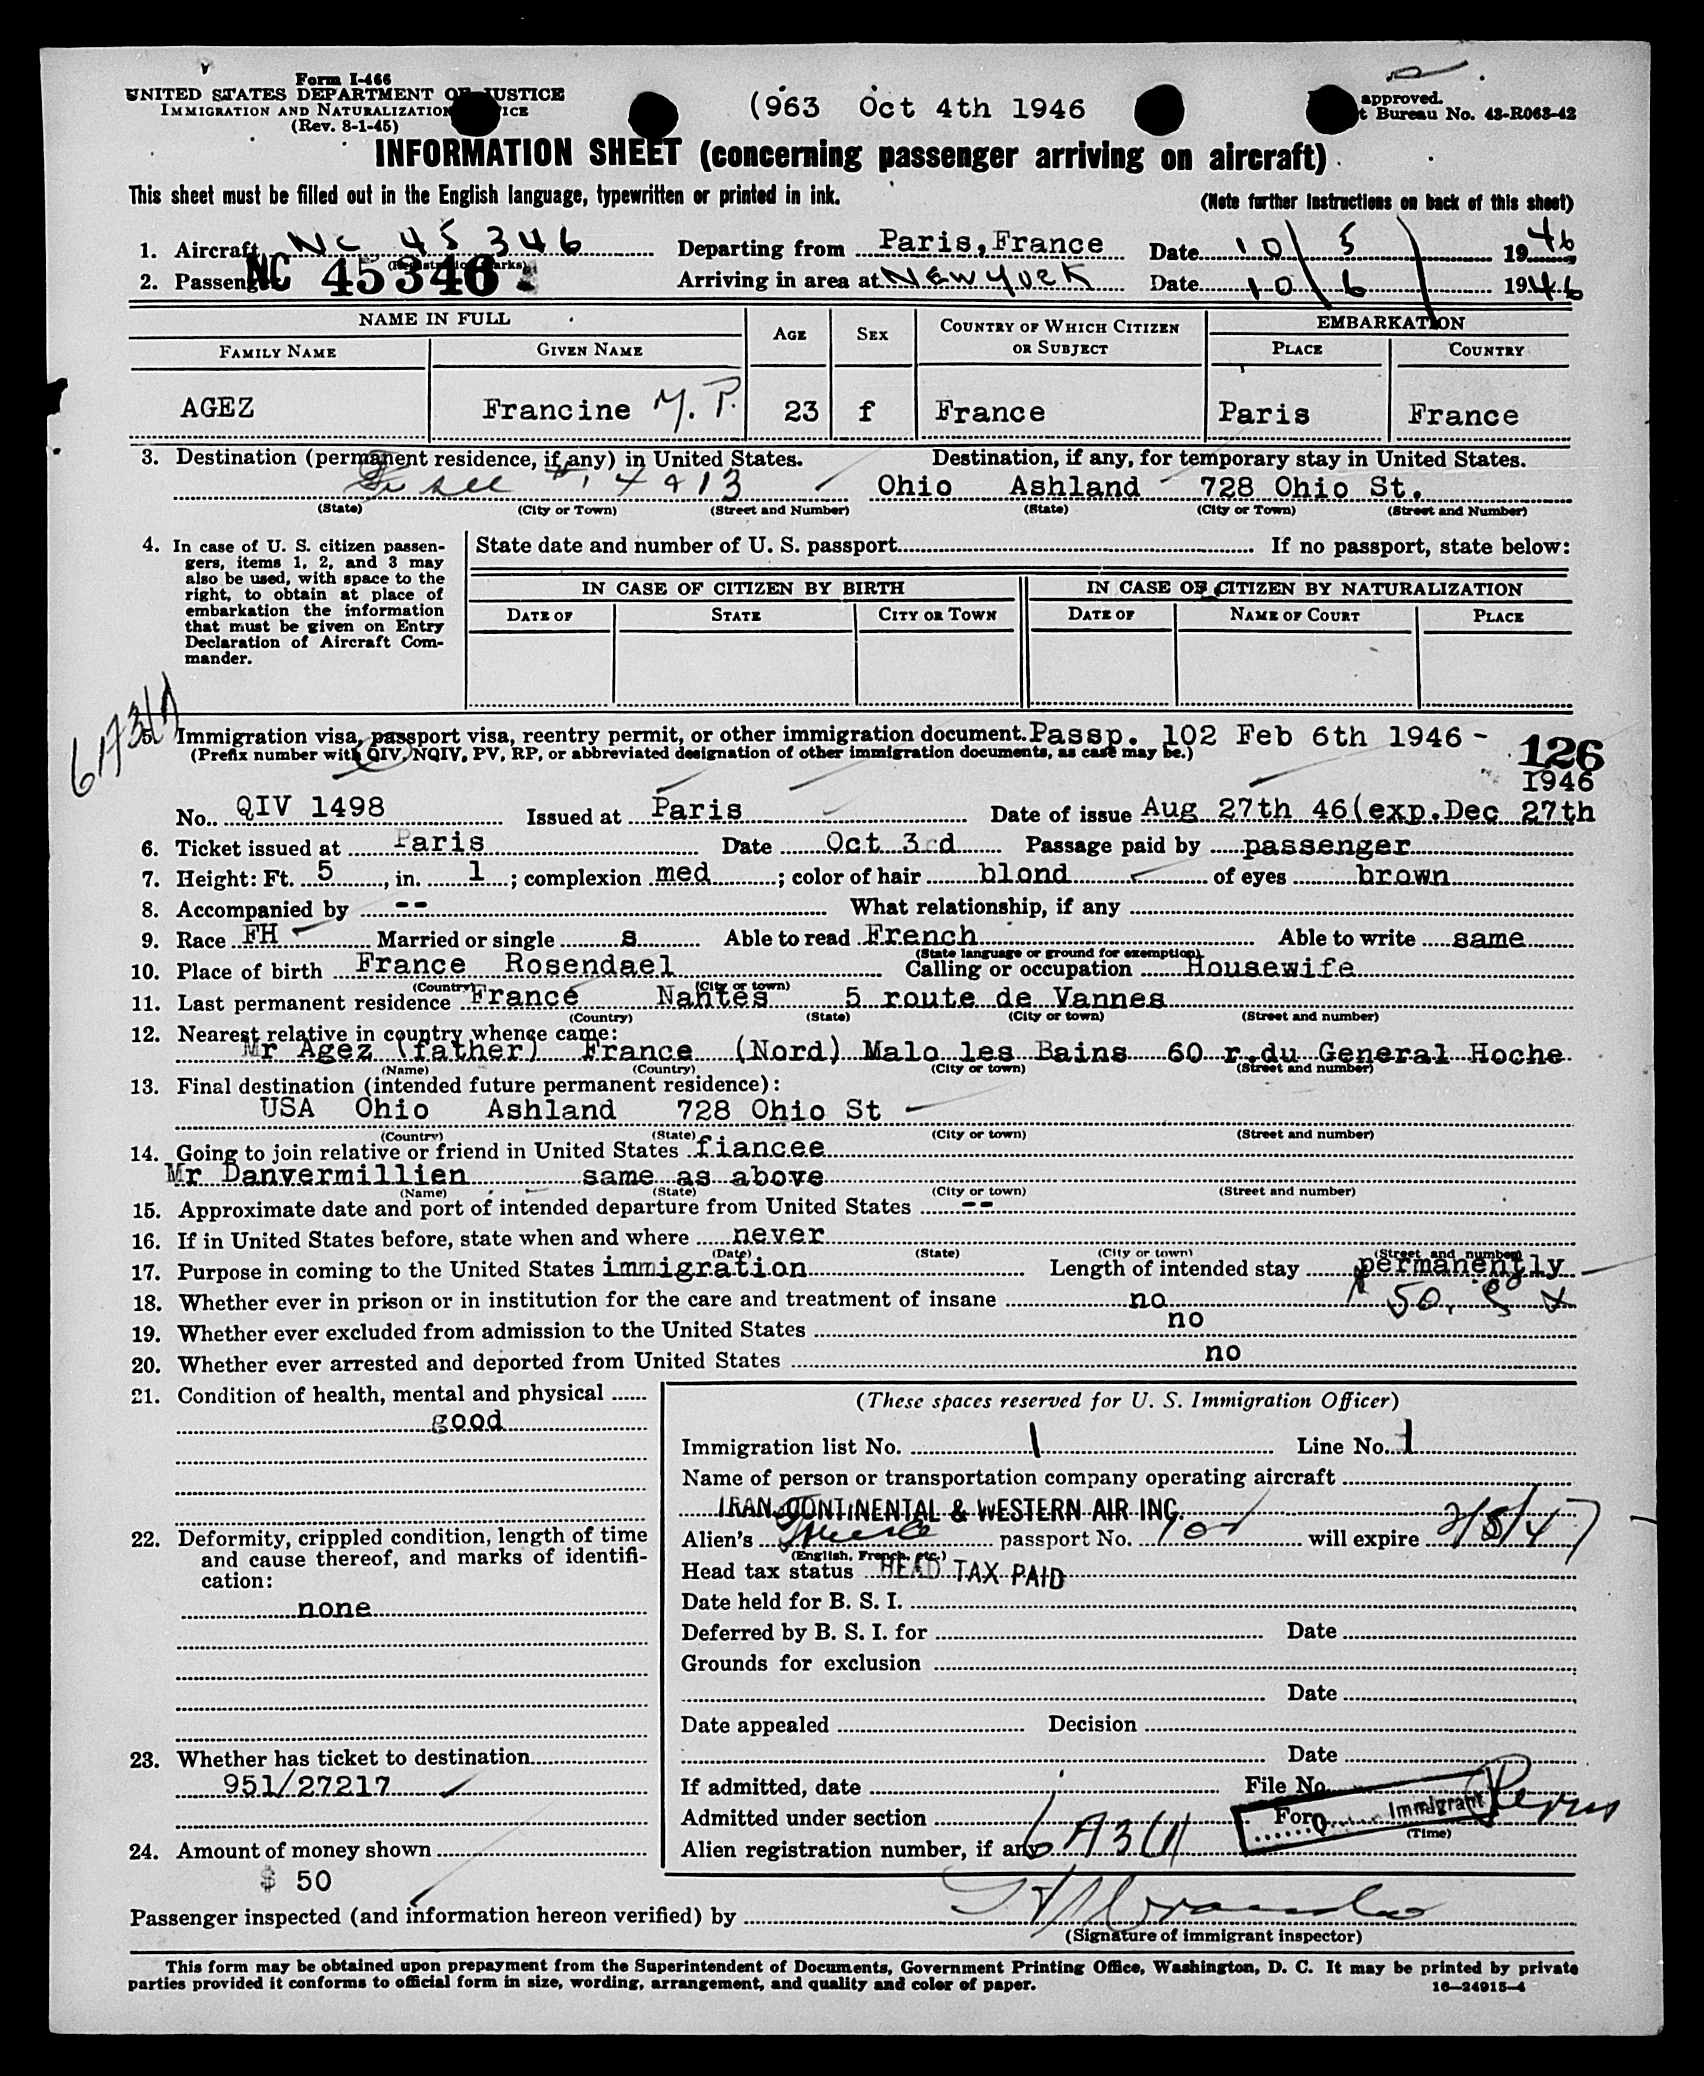 Form I-466
UNITED STATES DEPARTMENT OF JUSTICE
IMMIGRATION AND NATURALIZATION ICE
(Rev. 8-1-45)
(963 Oct 4th 1946
approved.
t Bureau No. 43-R063-42
INFORMATION SHEET (concerning passenger arriving on aircraft)
This sheet must be filled out in the English language, typewritten or printed in ink.
(Note further instructions on back of this sheet)
1. Aircraft NC 45346 Departing from Paris, France Date 10/5/ 1946
2. Passenger NC 45346 Arriving in area at NEW YORK Date 10/6/ 1946
NAME IN FULL
FAMILY NAME GIVEN NAME AGE SEX COUNTRY OF WHICH CITIZEN OR SUBJECT EMBARKATION PLACE COUNTRY
AGEZ Francine M. P. 23 f France Paris France
3. Destination (permanent residence, if any) in United States. Destination, if any, for temporary stay in United States.
see # 14 & 13 Ohio Ashland 728 Ohio St.
(State) (City or Town) (Street and Number) (State) (City or Town) (Street and Number)
4. In case of U. S. citizen passen-
gers, items 1, 2, and 3 may
also be used, with space to the
right, to obtain at place of
embarkation the information
that must be given on Entry
Declaration of Aircraft Com-
mander.
State date and number of U. S. passport If no passport, state below:
IN CASE OF CITIZEN BY BIRTH IN CASE OF CITIZEN BY NATURALIZATION
DATE OF STATE CITY OR TOWN DATE OF NAME OF COURT PLACE
5. Immigration visa, passport visa, reentry permit, or other immigration document. Passp. 102 Feb 6th 1946 - 126
(Prefix number with QIV, NQIV, PV, RP, or abbreviated designation of other immigration documents, as case may be.)
1946
No. QIV 1498 Issued at Paris Date of issue Aug 27th 46(exp.Dec 27th
6. Ticket issued at Paris Date Oct 3rd Passage paid by passenger
7. Height: Ft. 5, in. 1; complexion med; color of hair blond of eyes brown
8. Accompanied by -- What relationship, if any
9. Race FH Married or single s Able to read French Able to write same
(State language or ground for exemption)
10. Place of birth France Rosendael Calling or occupation Housewife
(Country) (City or town)
11. Last permanent residence France Nantes 5 route de Vannes
(Country) (State) (City or town) (Street and number)
12. Nearest relative in country whence came:
Mr Agez (father) France (Nord) Malo les Bains 60 r.du General Hoche
(Name) (Country) (City or town) (Street and number)
13. Final destination (intended future permanent residence):
USA Ohio Ashland 728 Ohio St
(Country) (State) (City or town) (Street and number)
14. Going to join relative or friend in United States fiancee
Mr Danvermillien same as above
(Name) (State) (City or town) (Street and number)
15. Approximate date and port of intended departure from United States --
16. If in United States before, state when and where never
(Date) (State) (City or town) (Street and number)
17. Purpose in coming to the United States immigration Length of intended stay permanently
18. Whether ever in prison or in institution for the care and treatment of insane no
19. Whether ever excluded from admission to the United States no
20. Whether ever arrested and deported from United States no
21. Condition of health, mental and physical
good
22. Deformity, crippled condition, length of time
and cause thereof, and marks of identifi-
cation:
none
23. Whether has ticket to destination
951/27217
24. Amount of money shown
$ 50
(These spaces reserved for U. S. Immigration Officer)
Immigration list No. 1 Line No. 1
Name of person or transportation company operating aircraft
TRANSCONTINENTAL & WESTERN AIR INC.
Alien's passport No. will expire 2/5/47
(English, French, etc.)
Head tax status HEAD TAX PAID
Date held for B. S. I.
Deferred by B. S. I. for Date
Grounds for exclusion
Date
Date appealed Decision
Date
If admitted, date File No.
Admitted under section For Q Immigrant
(Time)
Alien registration number, if any
Passenger inspected (and information hereon verified) by
(Signature of immigrant inspector)
This form may be obtained upon prepayment from the Superintendent of Documents, Government Printing Office, Washington, D. C. It may be printed by private
parties provided it conforms to official form in size, wording, arrangement, and quality and color of paper. 16—24915-4